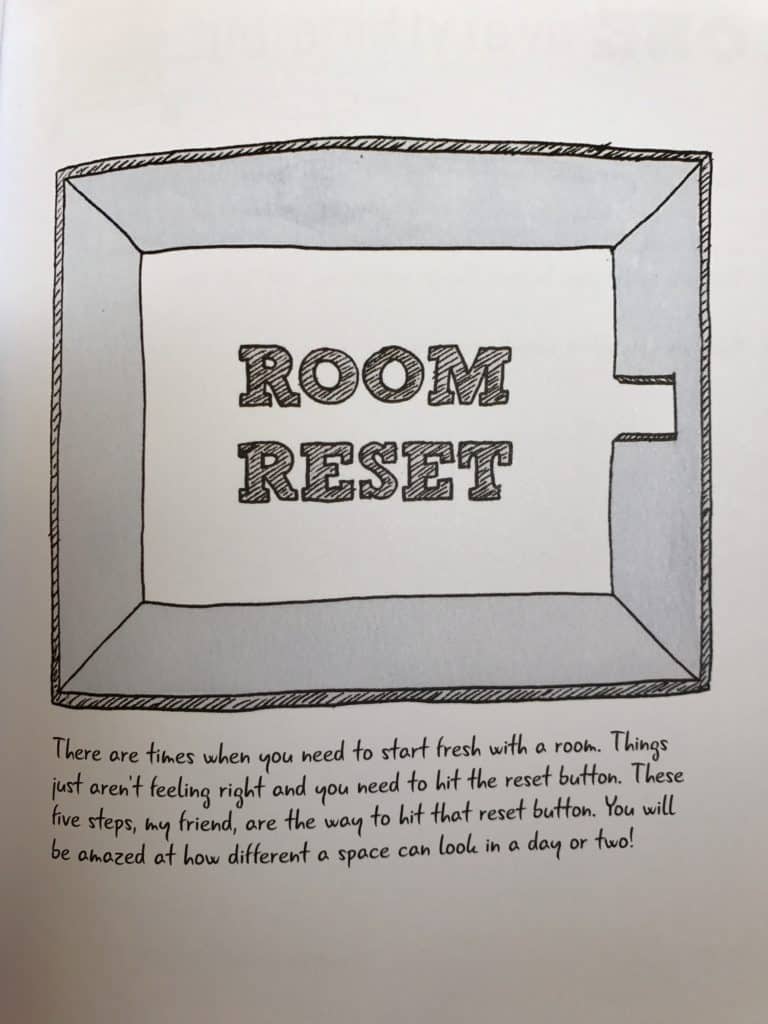 ROOM
RESET
There are times when you need to start fresh with a room. Things
just aren't feeling right and you need to hit the reset button. These
five steps, my friend, are the way to hit that reset button. You will
be amazed at how different a space can look in a day or two!